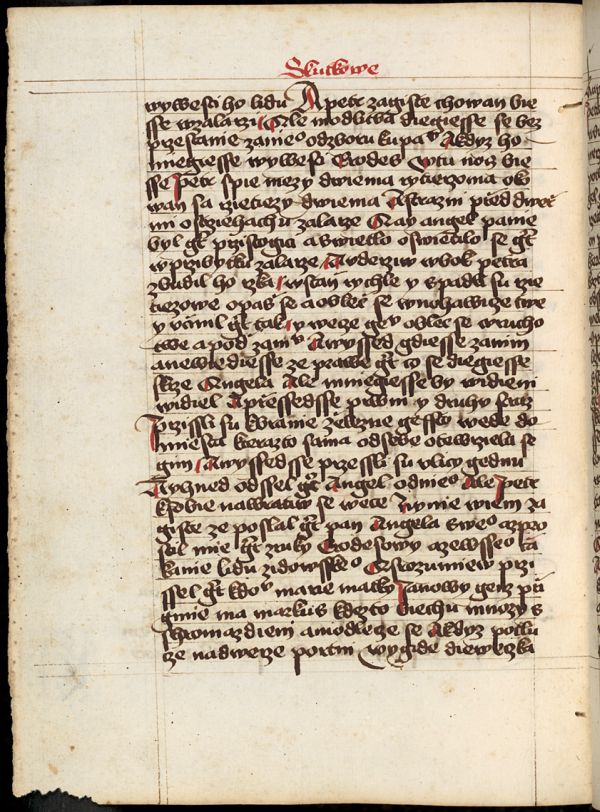 Skutkowe
wywesti ho lidu A petr zagiste chowan bie
sse w zalarzi Ale modlitba diegiesse se bez
przestanie zanieo od zboru kupav A kdyz ho
miegiesse wywesti Erodes w tu noc bie
sse Petr spie mezy dwiema rytierzoma oko
wan sa rzetiezy dwiema A strazni przed dwerz
mi ostriehachu zalarze A ay angel panie
byl gt przistogie a swietlo oswietilo se gt
w przibytku zalarze A uderziw w bok petra
zbudil ho rzka wstan rychle y spadli su rze
tiezowe opas se a obleč se w nohawicze twe
y ucinil gt tak y wece gev oblec se w rucho
twe a pod za mv A wyssed gdiesse za nim
a newiediesse ze prawe gt to se diegiesse
skrze Angela Ale mniegiesse by widieni
widiel A pressedsse prwni y druhy straz
przissli su k branie zelezne gessto wede do
miesta kterazto sama od sebe otewrziela se
gim A wyssedsse przessli su ulicy gednu
A yhned odssel gt Angel od nieo Ale Petr
k sobie nawratiw se wece Nynie wiem za
giste ze poslal gt pan Angela sweo a zpro
stil mie gt z ruky Erodesowy a ze wsseo cze
kanie lidu zidowskeo A srozumiew przi
ssel gt k dov marie matky Janowy genz przi
gmie ma markus kdezto biechu mnozy s
hromazdieni a modlecze se A kdyz potlu
cze na dwerze portni wygide diewczka